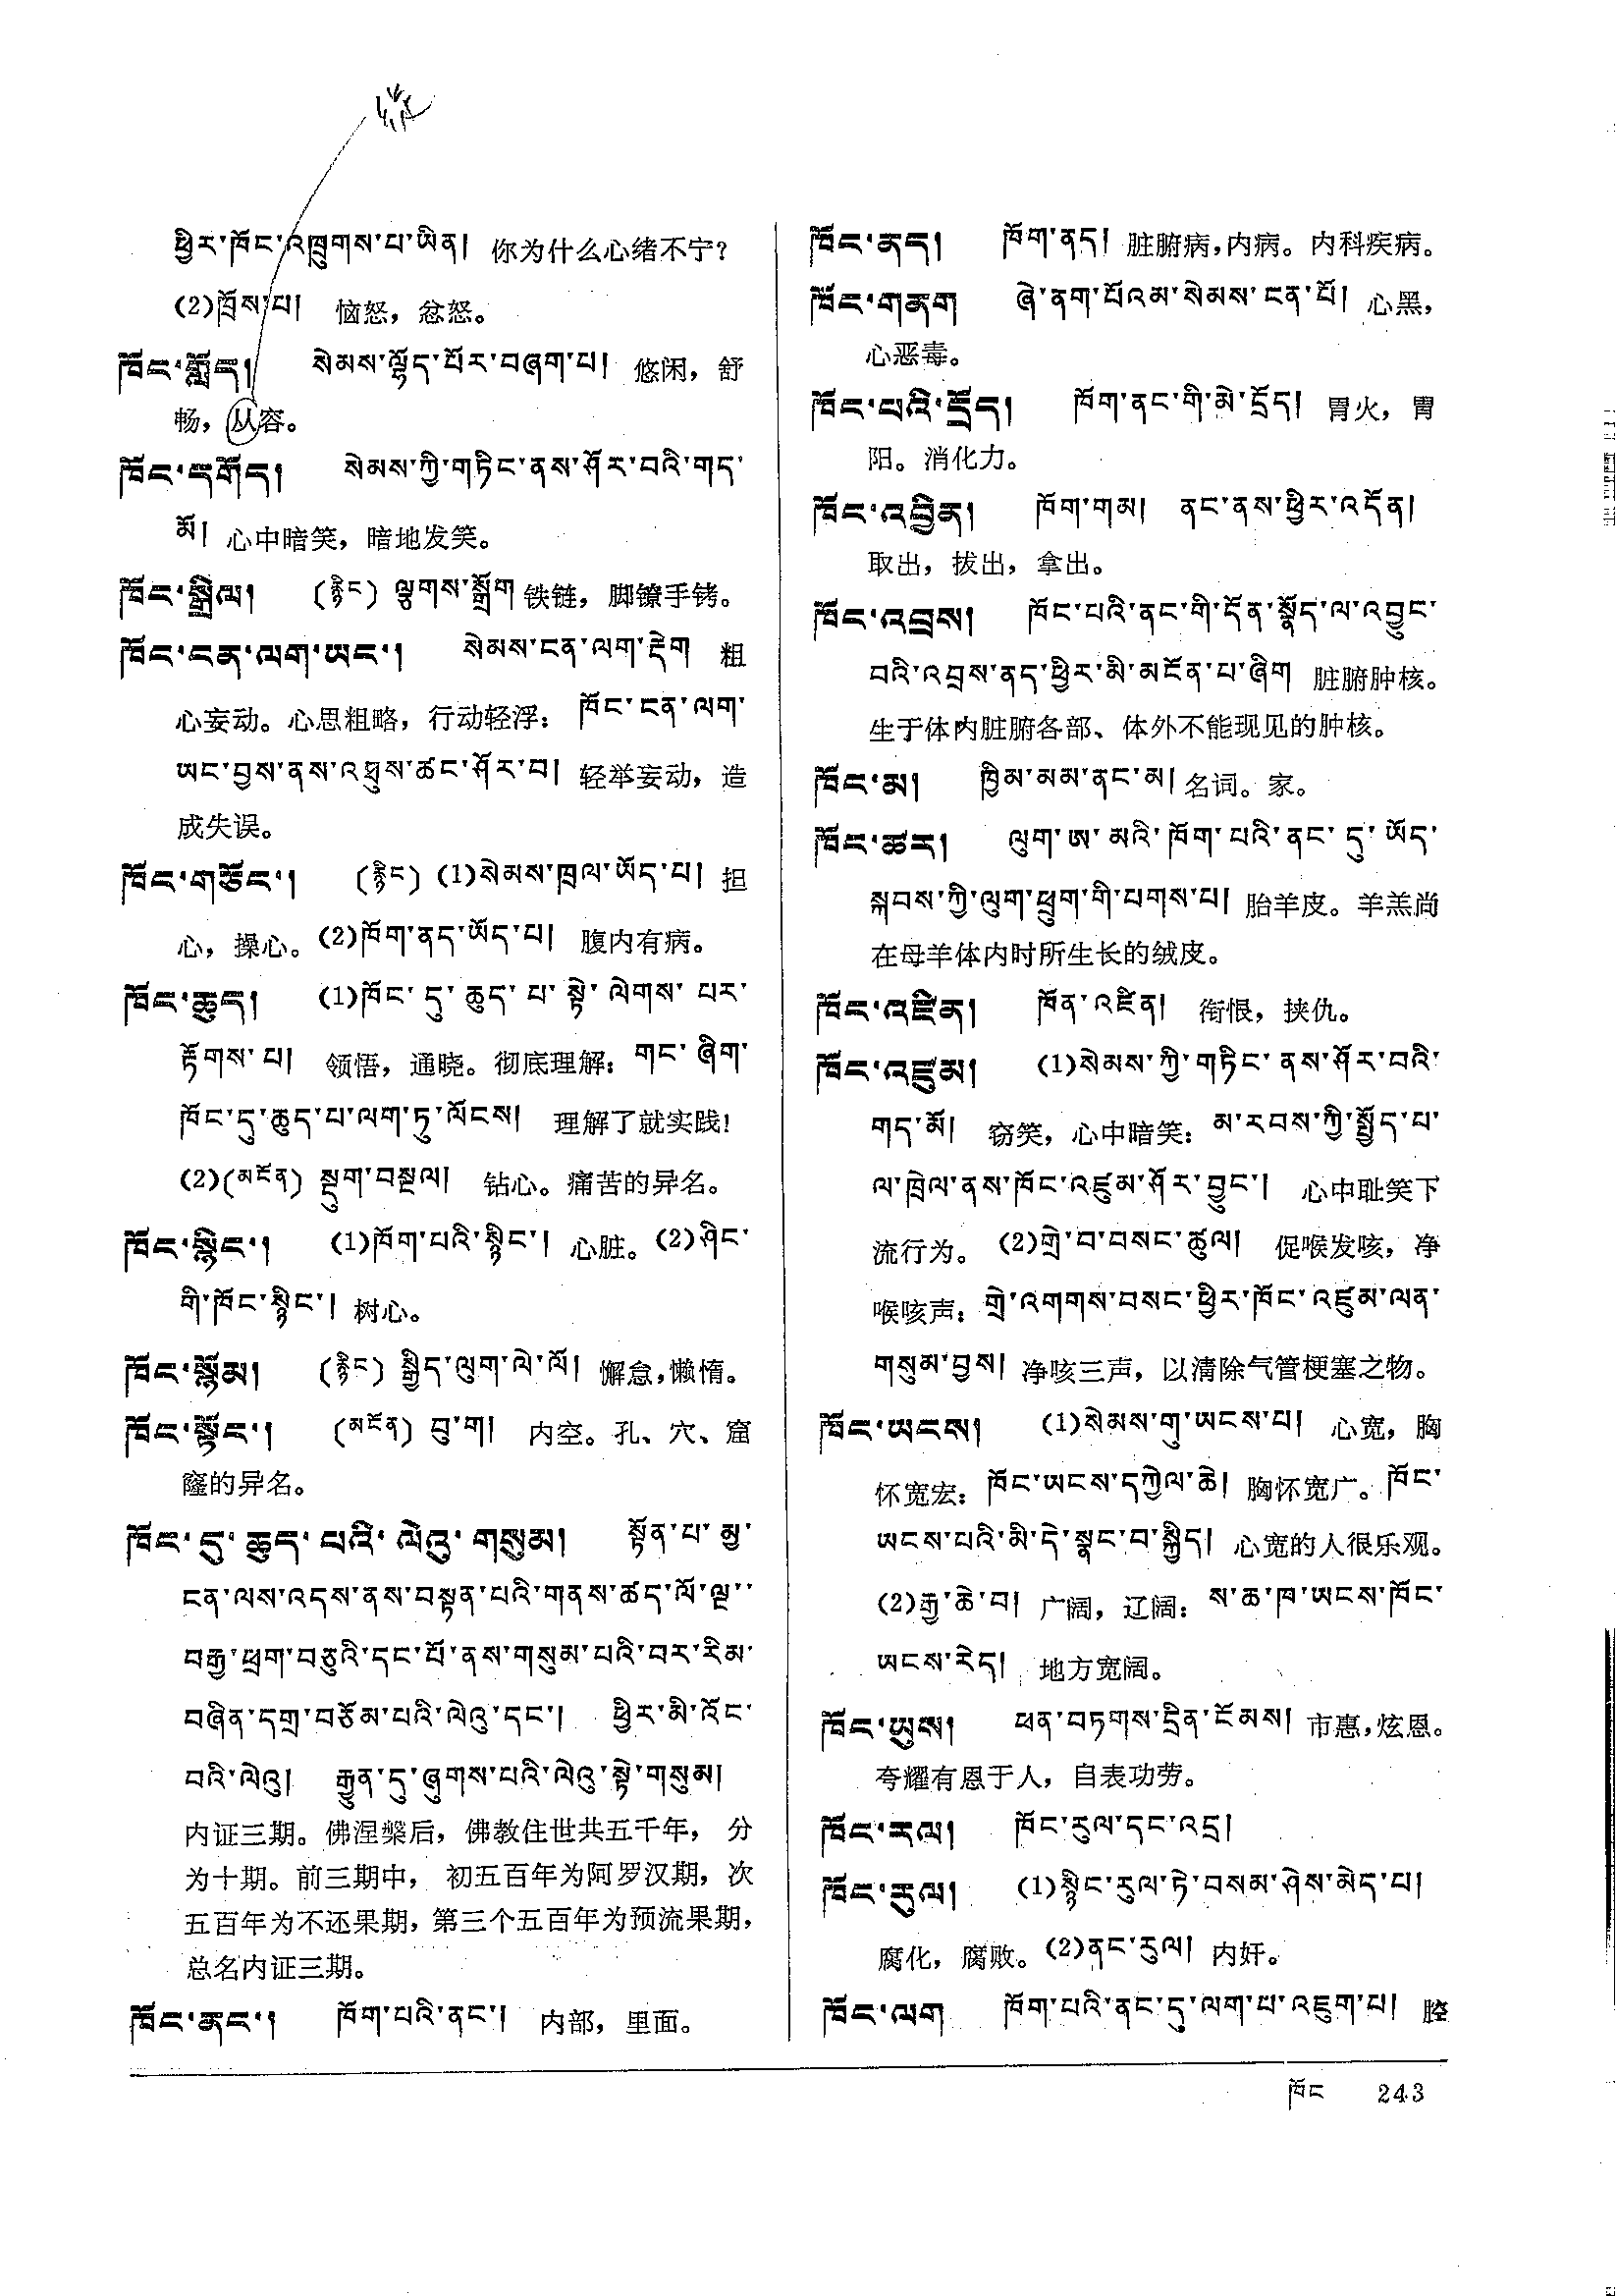 ཕྱིར་ཁོང་འཁྲུགས་པ་ཡིན། 你为什么心绪不宁?
(2)ཁྲོས་པ། 恼怒，忿怒。
ཁོང་གློད། སེམས་ལྷོད་པོར་བཞག་པ། 悠闲，舒
畅，从容。
ཁོང་དགོད། སེམས་ཀྱི་གཏིང་ནས་ཤོར་བའི་གད་
མོ། 心中暗笑，暗地发笑。
ཁོང་སྒྲིལ། (རྙིང) ལྕགས་སྒྲོག 铁链，脚镣手铐。
ཁོང་ངན་ལག་ཡང་། སེམས་ངན་ལག་རྡེག 粗
心妄动。心思粗略，行动轻浮: ཁོང་ངན་ལག་
ཡང་བྱས་ནས་འཕྲུས་ཚང་ཤོར་བ། 轻举妄动，造
成失误。
ཁོང་གཅོང་། (རྙིང) (1)སེམས་ཁྲལ་ཡོད་པ། 担
心，操心。(2)ཁོག་ནད་ཡོད་པ། 腹内有病。
ཁོང་ཆུད། (1)ཁོང་དུ་ཆུད་པ་སྟེ་ལེགས་པར་
རྟོགས་པ། 领悟，通晓。彻底理解: གང་ཞིག་
ཁོང་དུ་ཆུད་པ་ལག་ཏུ་ལོངས། 理解了就实践!
(2)(མངོན) སྡུག་བསྔལ། 钻心。痛苦的异名。
ཁོང་སྙིང་། (1)ཁོག་པའི་སྙིང་། 心脏。(2)ཤིང་
གི་ཁོང་སྙིང་། 树心。
ཁོང་སྙོམ། (རྙིང) སྒྱིད་ལུག་ལེ་ལོ། 懈怠,懒惰。
ཁོང་སྟོང་། (མངོན) བུ་ག། 内空。孔、穴、窟
窿的异名。
ཁོང་དུ་ཆུད་པའི་ལེའུ་གསུམ། སྟོན་པ་མྱ་
ངན་ལས་འདས་ནས་བསྟན་པའི་གནས་ཚད་ལོ་ལྔ་
བརྒྱ་ཕྲག་བཅུའི་དང་པོ་ནས་གསུམ་པའི་བར་རིམ་
བཞིན་དགྲ་བཅོམ་པའི་ལེའུ་དང་། ཕྱིར་མི་འོང་
བའི་ལེའུ། རྒྱུན་དུ་ཞུགས་པའི་ལེའུ་སྟེ་གསུམ།
内证三期。佛涅槃后，佛教住世共五千年，分
为十期。前三期中，初五百年为阿罗汉期，次
五百年为不还果期，第三个五百年为预流果期，
总名内证三期。
ཁོང་ནང་། ཁོག་པའི་ནང་། 内部，里面。
ཁོང་ནད། ཁོག་ནད། 脏腑病,内病。内科疾病。
ཁོང་གནག ཞེ་ནག་པོའམ་སེམས་ངན་པོ། 心黑，
心恶毒。
ཁོང་པའི་དྲོད། ཁོག་ནང་གི་མེ་དྲོད། 胃火，胃
阳。消化力。
ཁོང་འབྱིན། ཁོག་གམ། ནང་ནས་ཕྱིར་འདོན།
取出，拔出，拿出。
ཁོང་འབྲས། ཁོང་པའི་ནང་གི་དོན་སྣོད་ལ་འབྱུང་
བའི་འབྲས་ནད་ཕྱིར་མི་མངོན་པ་ཞིག 脏腑肿核。
生于体内脏腑各部、体外不能现见的肿核。
ཁོང་མ། ཁྱིམ་མམ་ནང་མ། 名词。家。
ཁོང་ཚར། ལུག་ཨ་མའི་ཁོག་པའི་ནང་དུ་ཡོད་
སྐབས་ཀྱི་ལུག་ཕྲུག་གི་པགས་པ། 胎羊皮。羊羔尚
在母羊体内时所生长的绒皮。
ཁོང་འཛིན། ཁོན་འཛིན། 衔恨，挟仇。
ཁོང་འཛུམ། (1)སེམས་ཀྱི་གཏིང་ནས་ཤོར་བའི་
གད་མོ། 窃笑，心中暗笑: མ་རབས་ཀྱི་སྤྱོད་པ་
ལ་ཁྲེལ་ནས་ཁོང་འཛུམ་ཤོར་བྱུང་། 心中耻笑下
流行为。(2)གྲེ་བ་བསང་ཚུལ། 促喉发咳，净
喉咳声: གྲེ་འགགས་བསང་ཕྱིར་ཁོང་འཛུམ་ལན་
གསུམ་བྱས། 净咳三声，以清除气管梗塞之物。
ཁོང་ཡངས། (1)སེམས་གུ་ཡངས་པ། 心宽，胸
怀宽宏: ཁོང་ཡངས་དཀྱེལ་ཆེ། 胸怀宽广。ཁོང་
ཡངས་པའི་མི་དེ་སྣང་བ་སྐྱིད། 心宽的人很乐观。
(2)རྒྱ་ཆེ་བ། 广阔，辽阔: ས་ཆ་ཁ་ཡངས་ཁོང་
ཡངས་རེད། 地方宽阔。
ཁོང་ཡུས། ཕན་བཏགས་དྲིན་ངོམས། 市惠,炫恩。
夸耀有恩于人，自表功劳。
ཁོང་རལ། ཁོང་རུལ་དང་འདྲ།
ཁོང་རུལ། (1)སྙིང་རུལ་ཏེ་བསམ་ཤེས་མེད་པ།
腐化，腐败。(2)ནང་རུལ། 内奸。
ཁོང་ལག ཁོག་པའི་ནང་དུ་ལག་པ་འཇུག་པ། 腔
ཁོང 243